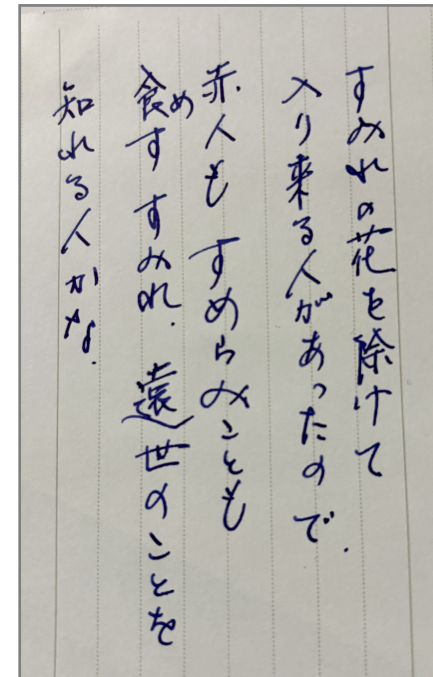 すみれの花を除けて
入り来る人があったので.
赤人も すめらみことも
食めす すみれ. 遠世のことを
知れる人かな.